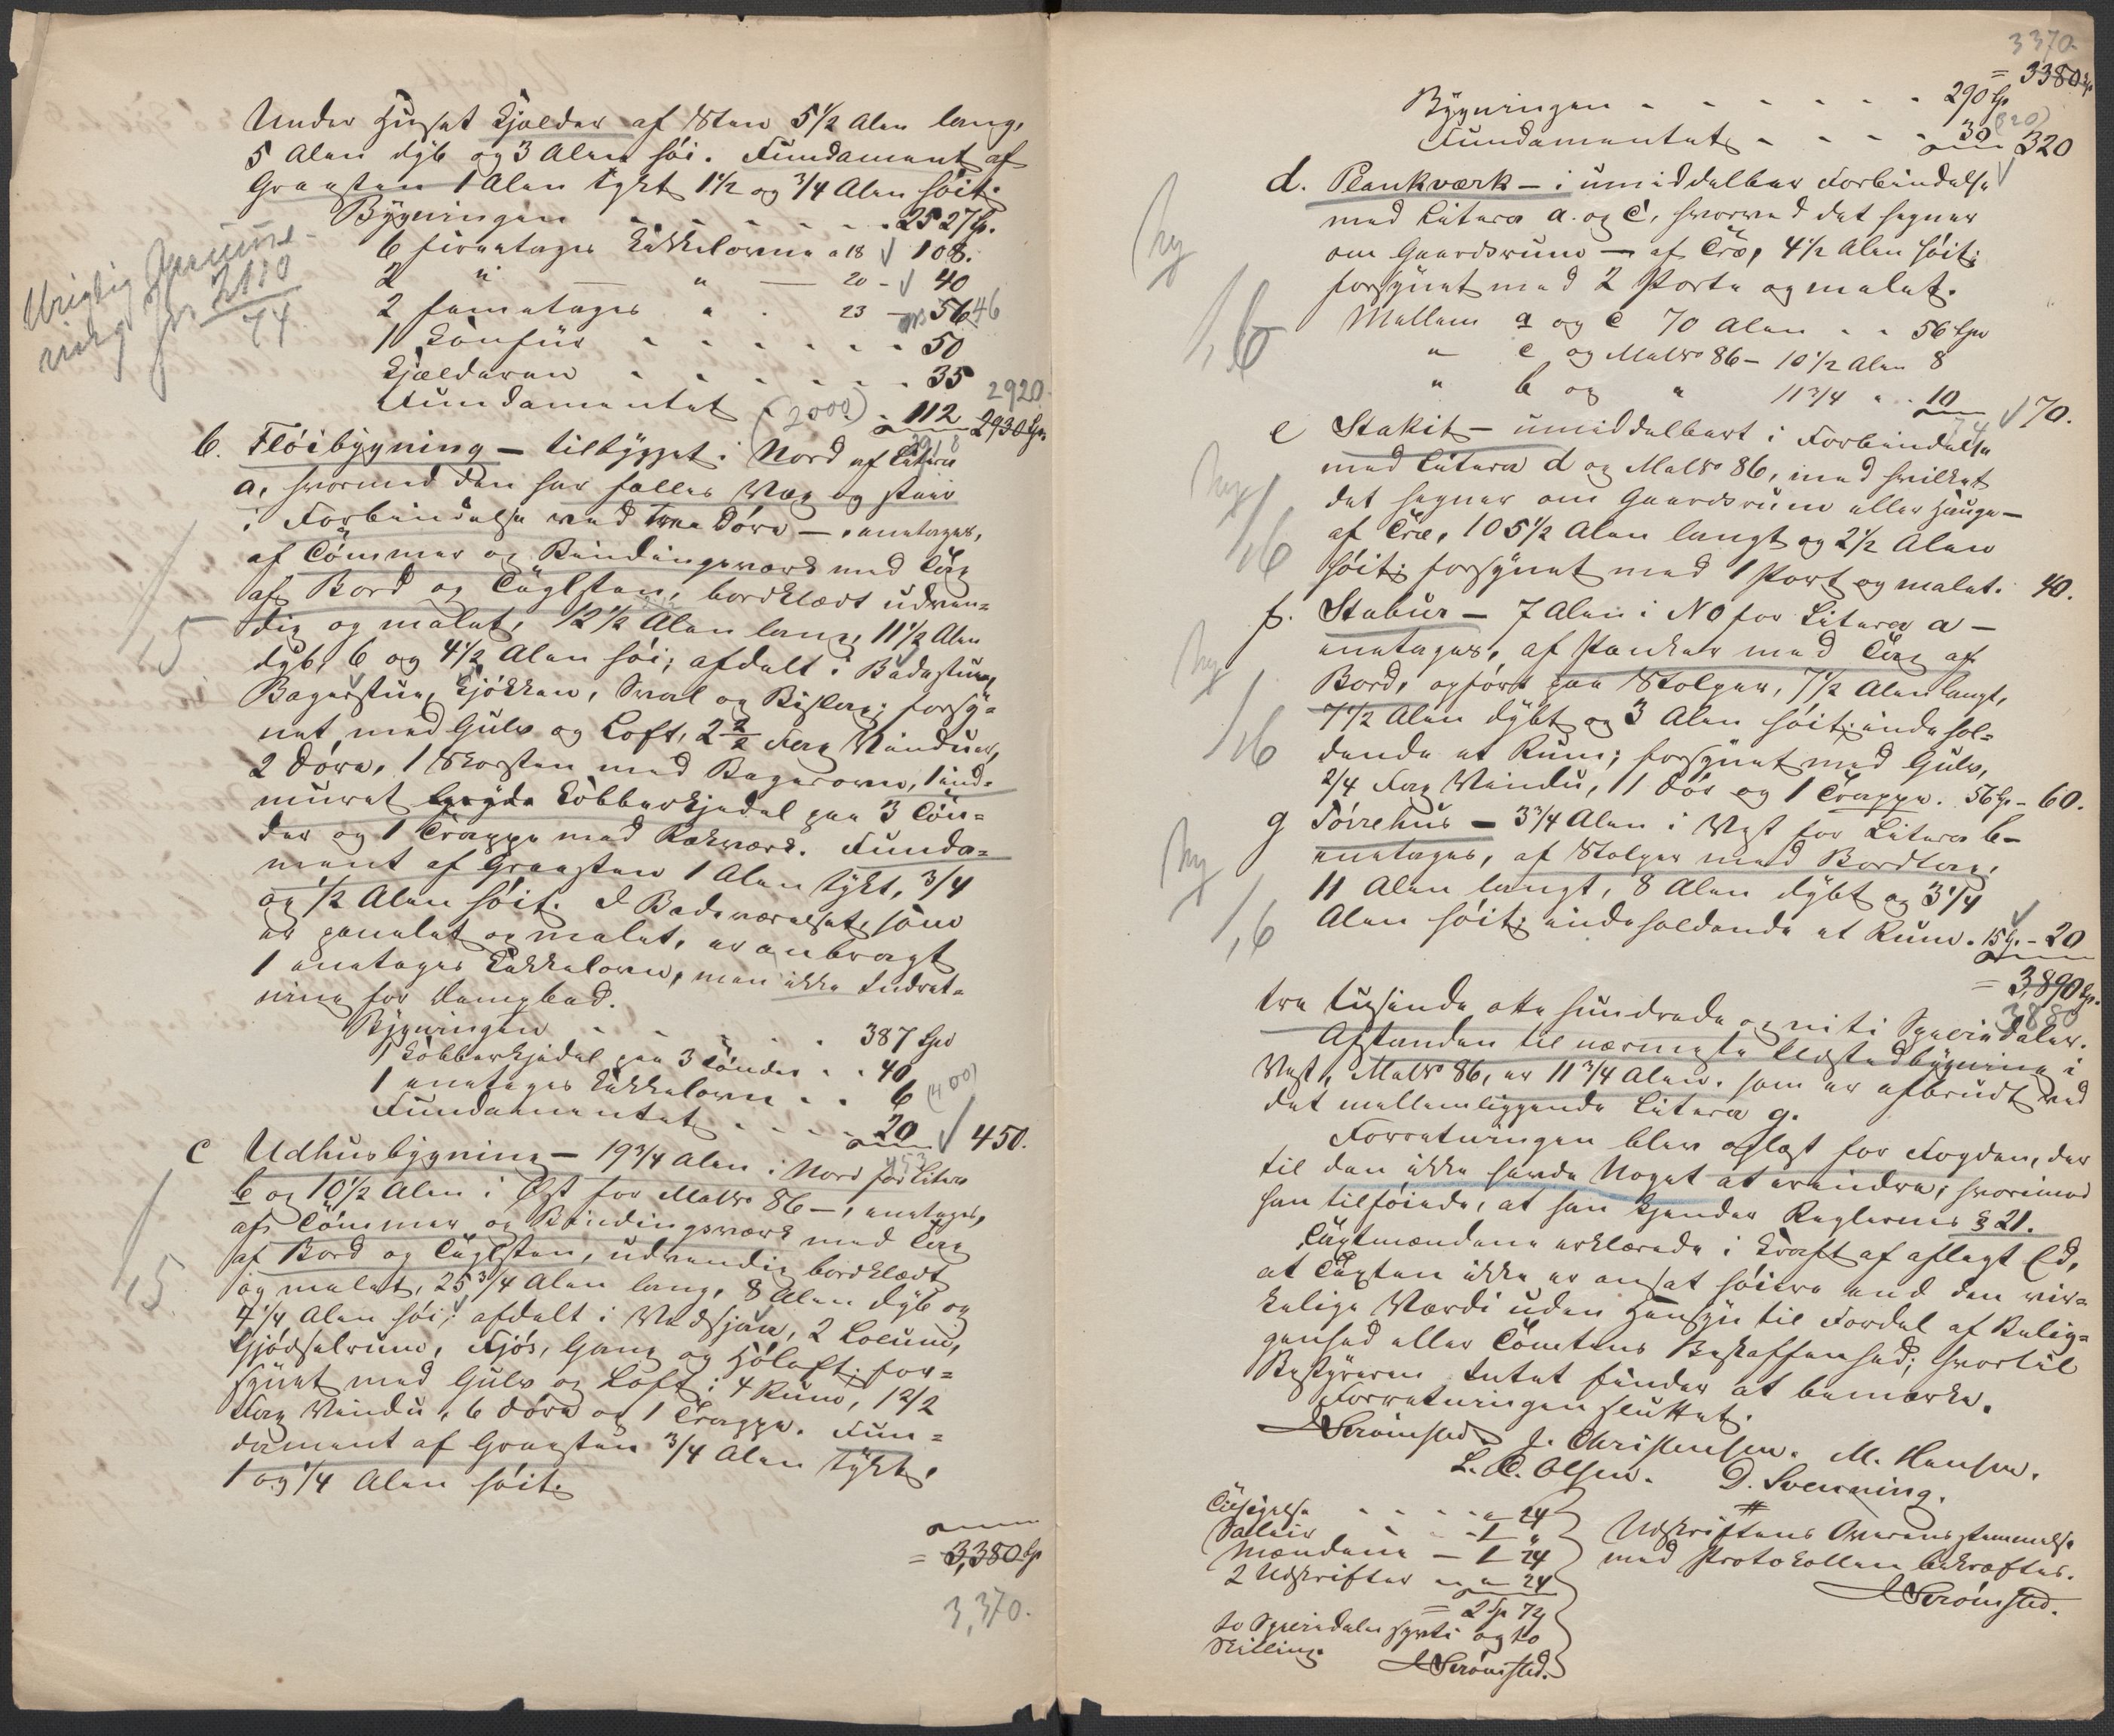 Under Huset Kjelder af Sten 5 1/2 Alen lang,
5 Alen dyb og 3 Alen höi. Fundament af
Graasten 1 Alen tykt 1 1/2 og 3/4 Alen höit.
Bygningen - - - - - 2527 Sp.
6 fireetages Kakkelovne a 18 √ 108.
2 " — " — 20 - √ 40
2 femetages " . 23 - 56 46
1 Komfür - - - - - - 50
Kjælderen - - - - - - 35
Fundamentet (2000) - 112 2930 Sp.
2920.
Urigtig
for 2110
74
b. Flöibygning — tilbygget i Nord af Litera
a, hvormed den har fælles Væg og staar
i Forbindelse ved tvee Döre —, eenetages,
af Tömmer og Bindingsværk med Tag
af Bord og Tuglsten, bordklædt udven=
dig og malet, 12 1/2 Alen lang, 11 1/2 Alen
dyb, 6 og 4 1/2 Alen höi; afdelt i Badestue,
Bagerstue, Kjökken, Sval og Bislag; forsy=
net med Gulv og Loft, 2 2/2 Fag Vinduer,
2 Döre, 1 Skorsten med Bagerovn, 1 ind=
muret Kobberkjedel paa 3 Tön=
der og 1 Trappe med Rækværk. Funda=
ment af Graasten 1 Alen tykt, 3/4
og 1/2 Alen höit. I Badeværelset, som
er panelet og malet, er anbragt
1 eenetages Kakkelovn, men ikke Indret=
ning for Dampbad.
Bygningen - - - - - 387 Spd
1 Kobberkjedel paa 3 Tönder - - 40
1 eenetages Kakkelovn - - 6 (400)
Fundamentet - - - - 20 √ 450.
453
c Udhusbygning — 19 3/4 Alen i Nord for Litera
b og 10 1/2 Alen i Öst for Matr No 86 —, eenetages,
af Tömmer og Bindingsværk med Tag
af Bord og Tuglsten, udvendig bordklædt
og malet, 25 3/4 Alen lang, 8 Alen dyb og
4 1/4 Alen höi; afdelt i Vedskjul, 2 Locum,
Gjödselrum, Fjös, Gang og Höloft; for=
synet med Gulv og Loft i 4 Rum, 1 2/2
Fag Vindu, 6 Döre og 1 Trappe. Fun=
dament af Graasten 3/4 Alen tykt,
1 og 1/4 Alen höit.
= 3,380 Sp
3,370.
1,5
1,5
3370
= 3380 Sp
Bygningen - - - - - - 290 Sp
Fundamentet - - - - 30 (320) 320
d. Plankværk — i umiddelbar Forbindelse
med Litera a. og c, hvorved det hegner
om Gaardsrum — af Træ, 4 1/2 Alen höit;
forsynet med 2 Porte og malet.
Mellem a og c 70 Alen - - 56 Spd
" c og Matr No 86 — 10 1/2 Alen 8
" b og " 11 3/4 " . 10 √ 70.
74
e Stakit — umiddelbart i Forbindelse
med Litera d og Matr No 86, med hvilket
det hegner om Gaardsrum eller Hauge —
af Træ, 105 1/2 Alen langt og 2 1/2 Alen
höit; forsynet med 1 Port og malet. 40.
f. Stabur — 7 Alen i NO for Litera a —
eenetages, af Planker med Tag af
Bord, opfört paa Stolper, 7 1/2 Alen langt,
7 1/2 Alen dybt og 3 Alen höit; indehol=
dende et Rum; forsynet med Gulv,
2/4 Fag Vindu, 1 Dör og 1 Trappe. 56 Sp. — 60.
g Törrehus — 3 3/4 Alen i Vest for Litera b —
eenetages, af Stolper med Bordtag,
11 Alen langt, 8 Alen dybt og 3 1/4
Alen höit; indeholdende et Rum. 15 Sp. - 20
= 3,890 Sp.
3880
tre tusinde otte hundrede og niti Speciedaler.
Afstanden til nærmeste Ildstedbygning i
Vest, Matr No 86, er 11 3/4 Alen, som er afbrudt ved
det mellemliggende Litera g.
Forretningen blev oplæst for Fogden, der
til den ikke havde Noget at erindre, hvorimod
han tilföiede, at han kjender Reglernes § 21.
Taxtmændene erklærede i Kraft af aflagt Ed,
at Taxten ikke er ansat höiere end den vir=
kelige Værdi uden Hensyn til Fordel af Belig=
genhed eller Tomtens Beskaffenhed; hvortil
Bestyreren Intet finder at bemærke.
Forretningen sluttet.
Strömsted. J. Christensen. M. Hansen.
L. C. Olsen. D. Svenning.
Tilsigelse - - - - " 24
Salair - - - 1 "
Mændene — 1 24
2 Udskrifter - - " 24
= 2 Sp 72
to Speciedaler sytti og to
Skilling.
Strömsted.
Udskriftens Overensstemmelse
med Protokollen bekræftes.
Strömsted.
ny
1,6
ny
1,6
ny
1,6
ny
1,6